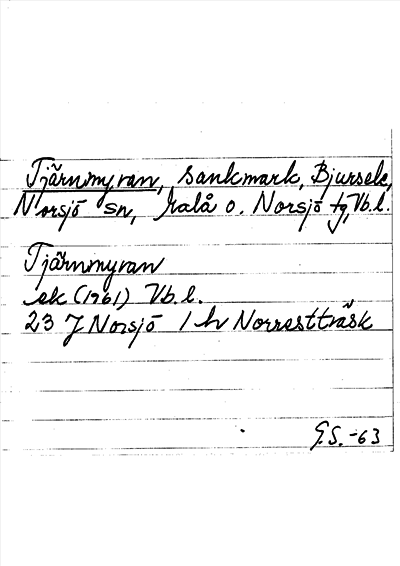 Tjärnmyran, sankmark, Bjursele,
Norsjö sn, Malå o. Norsjö tg, Vb.l.
Tjärnmyran
ek (1961) Vb.l.
23 J Norsjö 1 h Norrestträsk
G.S. -63